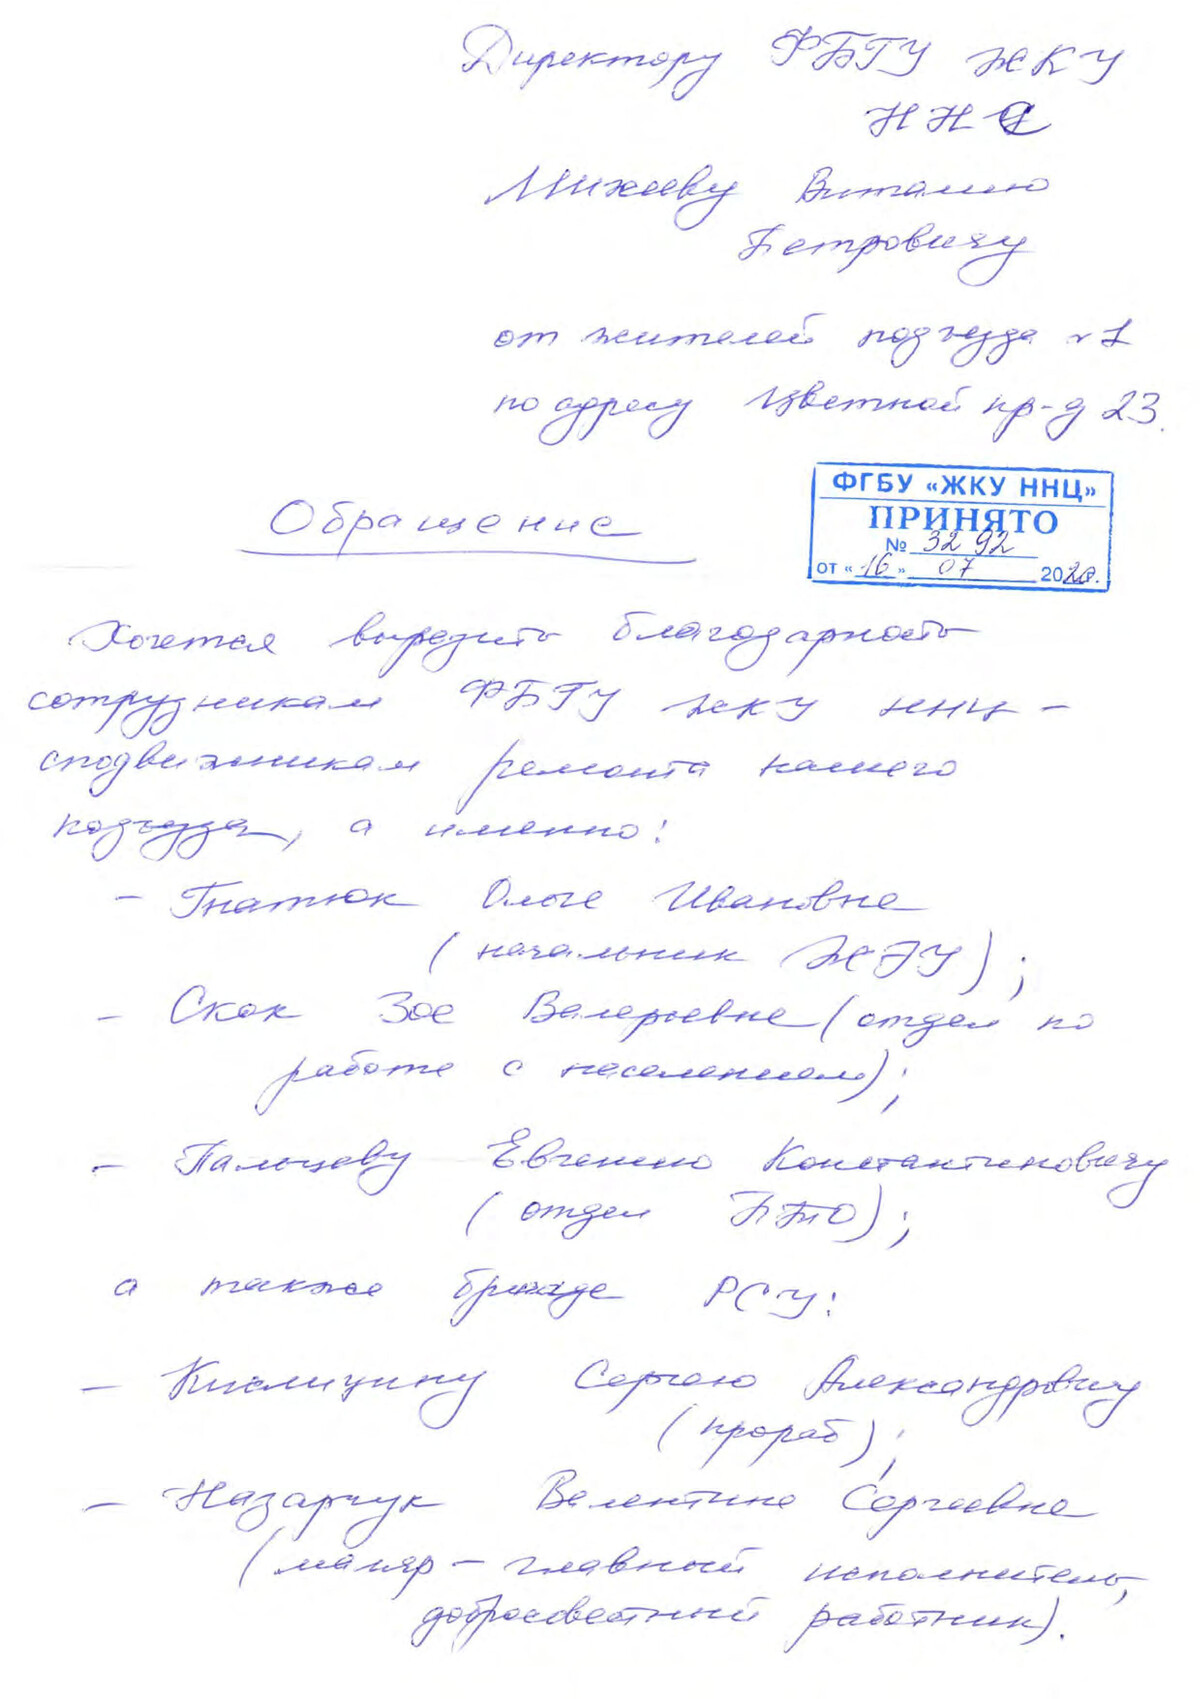 Директору ФБГУ ЖКУ
ННЦ
Михееву Виталию
Петровичу
от жителей подъезда №1
по адресу Цветной пр-д 23.
ФГБУ «ЖКУ ННЦ»
ПРИНЯТО
№ 3292
от «16» 07 2020г.
Обращение
Хочется выразить благодарность
сотрудникам ФБГУ ЖКУ ННЦ -
сподвижникам ремонта нашего
подъезда, а именно:
- Гнатюк Ольге Ивановне
(начальник ЖЭУ);
- Скок Зое Валерьевне (отдел по
работе с населением);
- Пальцеву Евгению Константиновичу
(отдел ПТО);
а также бригаде РСУ:
- Кислицину Сергею Александровичу
(прораб);
- Назарчук Валентине Сергеевне
(маляр - главный исполнитель,
добросовестный работник).